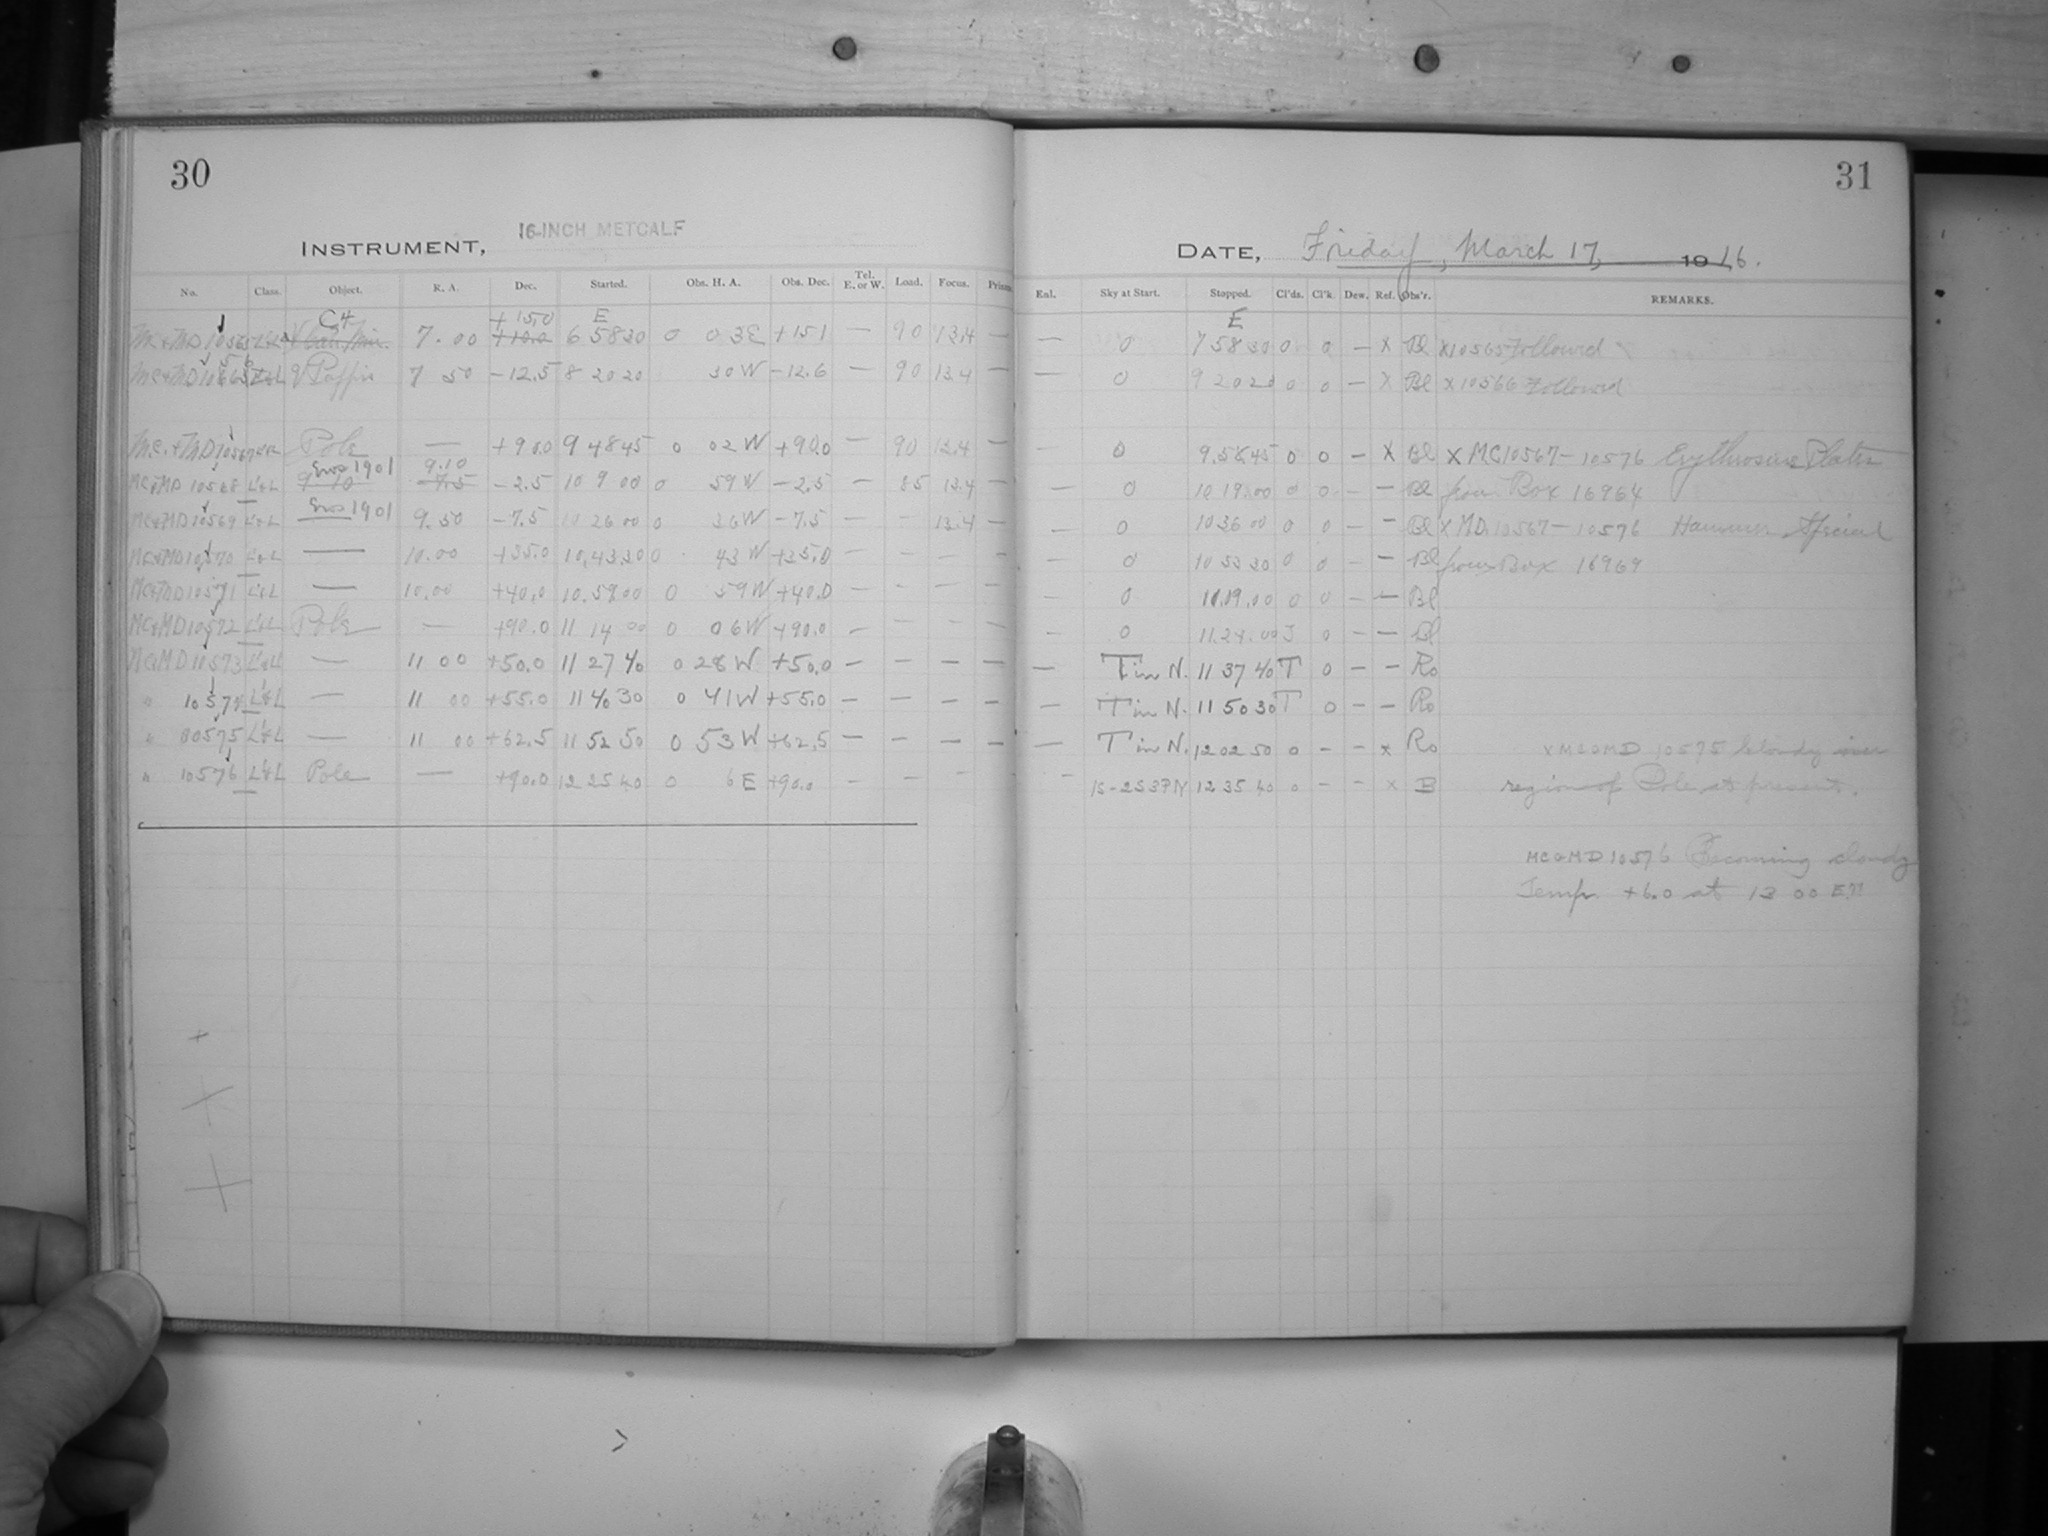 30
16-INCH METCALF
INSTRUMENT,
No. Class. Object. R. A. Dec. Started. Obs. H. A. Obs. Dec. Tel. E. or W. Load. Focus.
C4 +15.0 E
MC+MD 10565 7.00 +10.0 6 58 30 0 03E +15.1 — 90 13.4 —
MC+MD 10566 L&L V Puppis 7 50 -12.5 8 20 20 30W -12.6 — 90 13.4 —
MC.+MD 10567 Pole — +90.0 9 48 45 0 02W +90.0 — 90 13.4 —
Eros 1901 9.10
MC+MD 10568 L&L 9 10 7.5 -2.5 10 9 00 0 59W -2.5 — 85 13.4 —
Eros 1901
MC+MD 10569 L&L 9.50 -7.5 10 26 00 0 36W -7.5 — 13.4 —
MC+MD 10570 L&L — 10.00 +35.0 10,43 30 0 43W +35.0 — — — —
MC+MD 10571 L&L — 10.00 +40.0 10.59.00 0 59W +40.0 — — — —
MC+MD 10572 L&L Pole — +90.0 11 14 00 0 06W +90.0 — — — —
MC&MD 10573 L&L — 11 00 +50.0 11 27 40 0 28W +50.0 — — — —
" 10574 L&L — 11 00 +55.0 11 40 30 0 41W +55.0 — — — —
" 10575 L&L — 11 00 +62.5 11 52 50 0 53W +62.5 — — — —
" 10576 L&L Pole — +90.0 12 25 40 0 6E +90.0 — — — —
31
DATE, Friday, March 17, 1916.
Enl. Sky at Start. Stopped. Cl'ds. Cl'k. Dew. Ref. Obs'r. REMARKS.
E
— 0 7 58 30 0 0 — X Bl X 10565 Followed
— 0 9 20 20 0 0 — X Bl X 10566 Followed
— 0 9.58.45 0 0 — X Bl X MC10567-10576 Erythrosine Plates
— 0 10 19.00 0 0 — — Bl from Box 16964
— 0 10 36 00 0 0 — — Bl X MD 10567-10576 Hammer Special
— 0 10 53 30 0 0 — — Bl from Box 16969
— 0 11.09.00 0 0 — — Bl
— 0 11.24.00 J 0 — — Bl
— T in N. 11 37 40 T 0 — — Ro
— T in N. 11 50 30 T 0 — — Ro
— T in N. 12 02 50 0 — — X Ro X MC&MD 10575 Cloudy over
— 12 35 40 0 — — X B region of Pole at present.
MC&MD 10576 Becoming cloudy
Temp. +6.0 at 13 00 E.T.